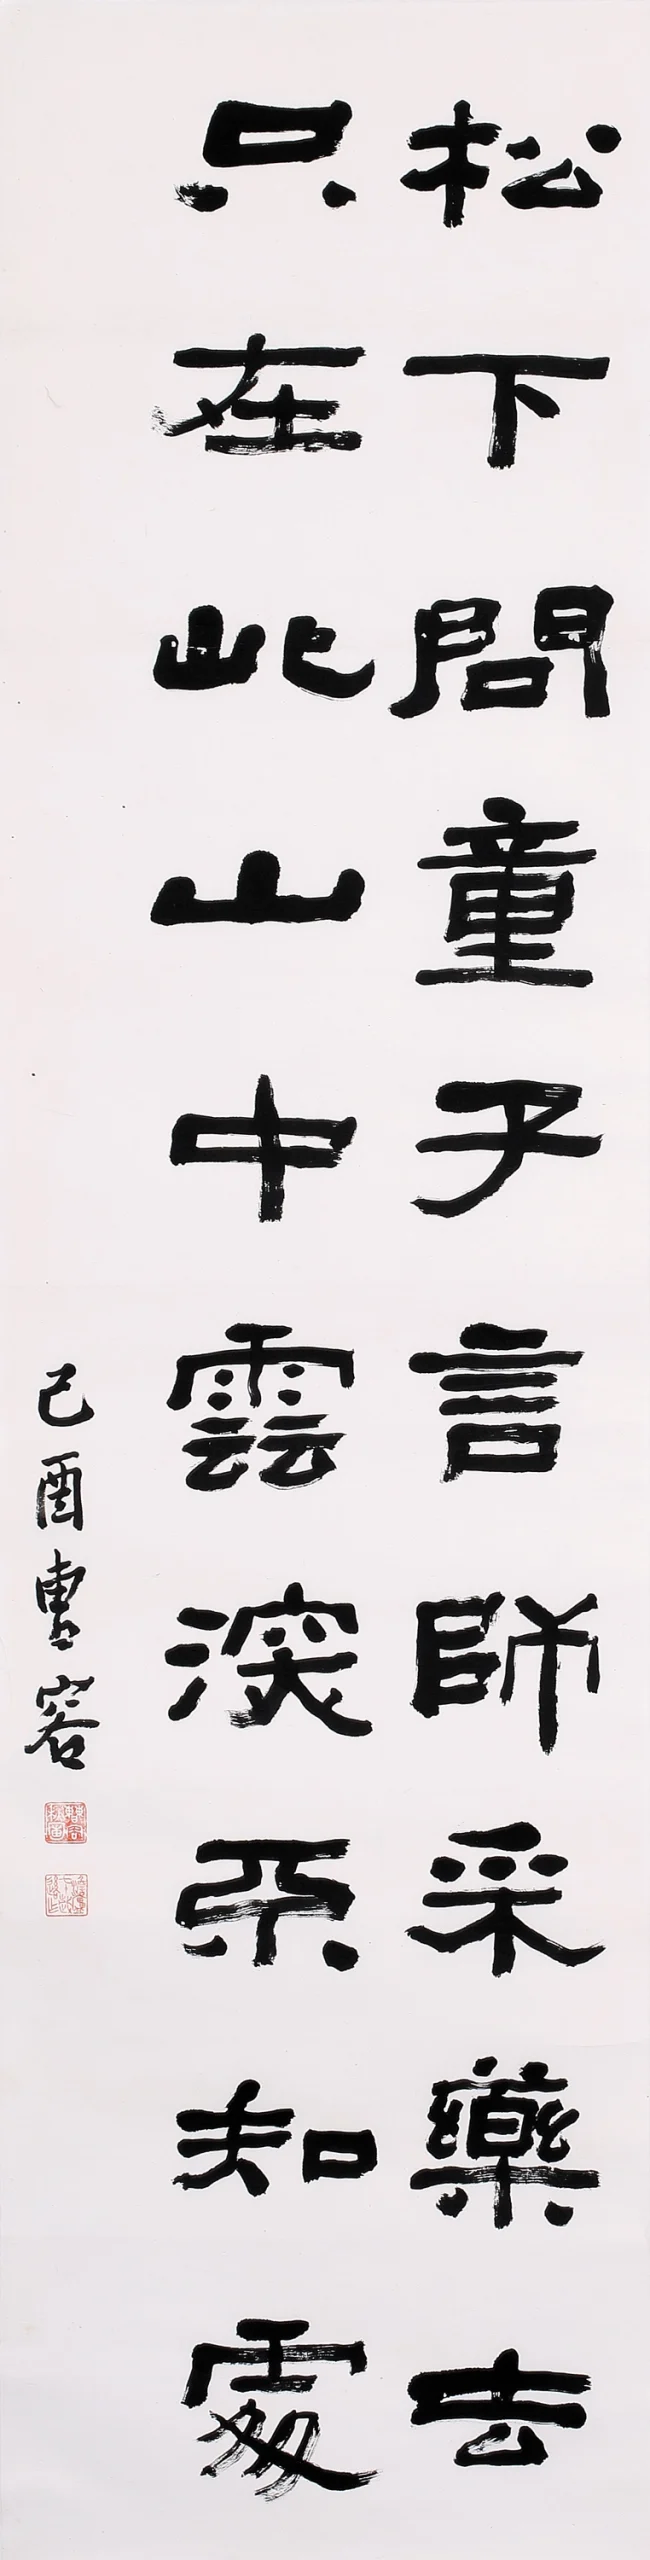 松下問童子言師采藥去
只在此山中雲深不知處
己酉曹容